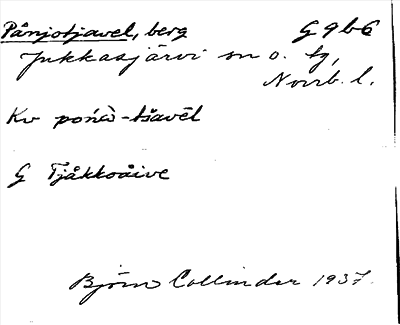 Pånjotjavel, berg G 9 b 6
Jukkasjärvi sn o. tg,
Norrb. l.
Kv
G Tjåkkoåive
Björn Collinder 1937.